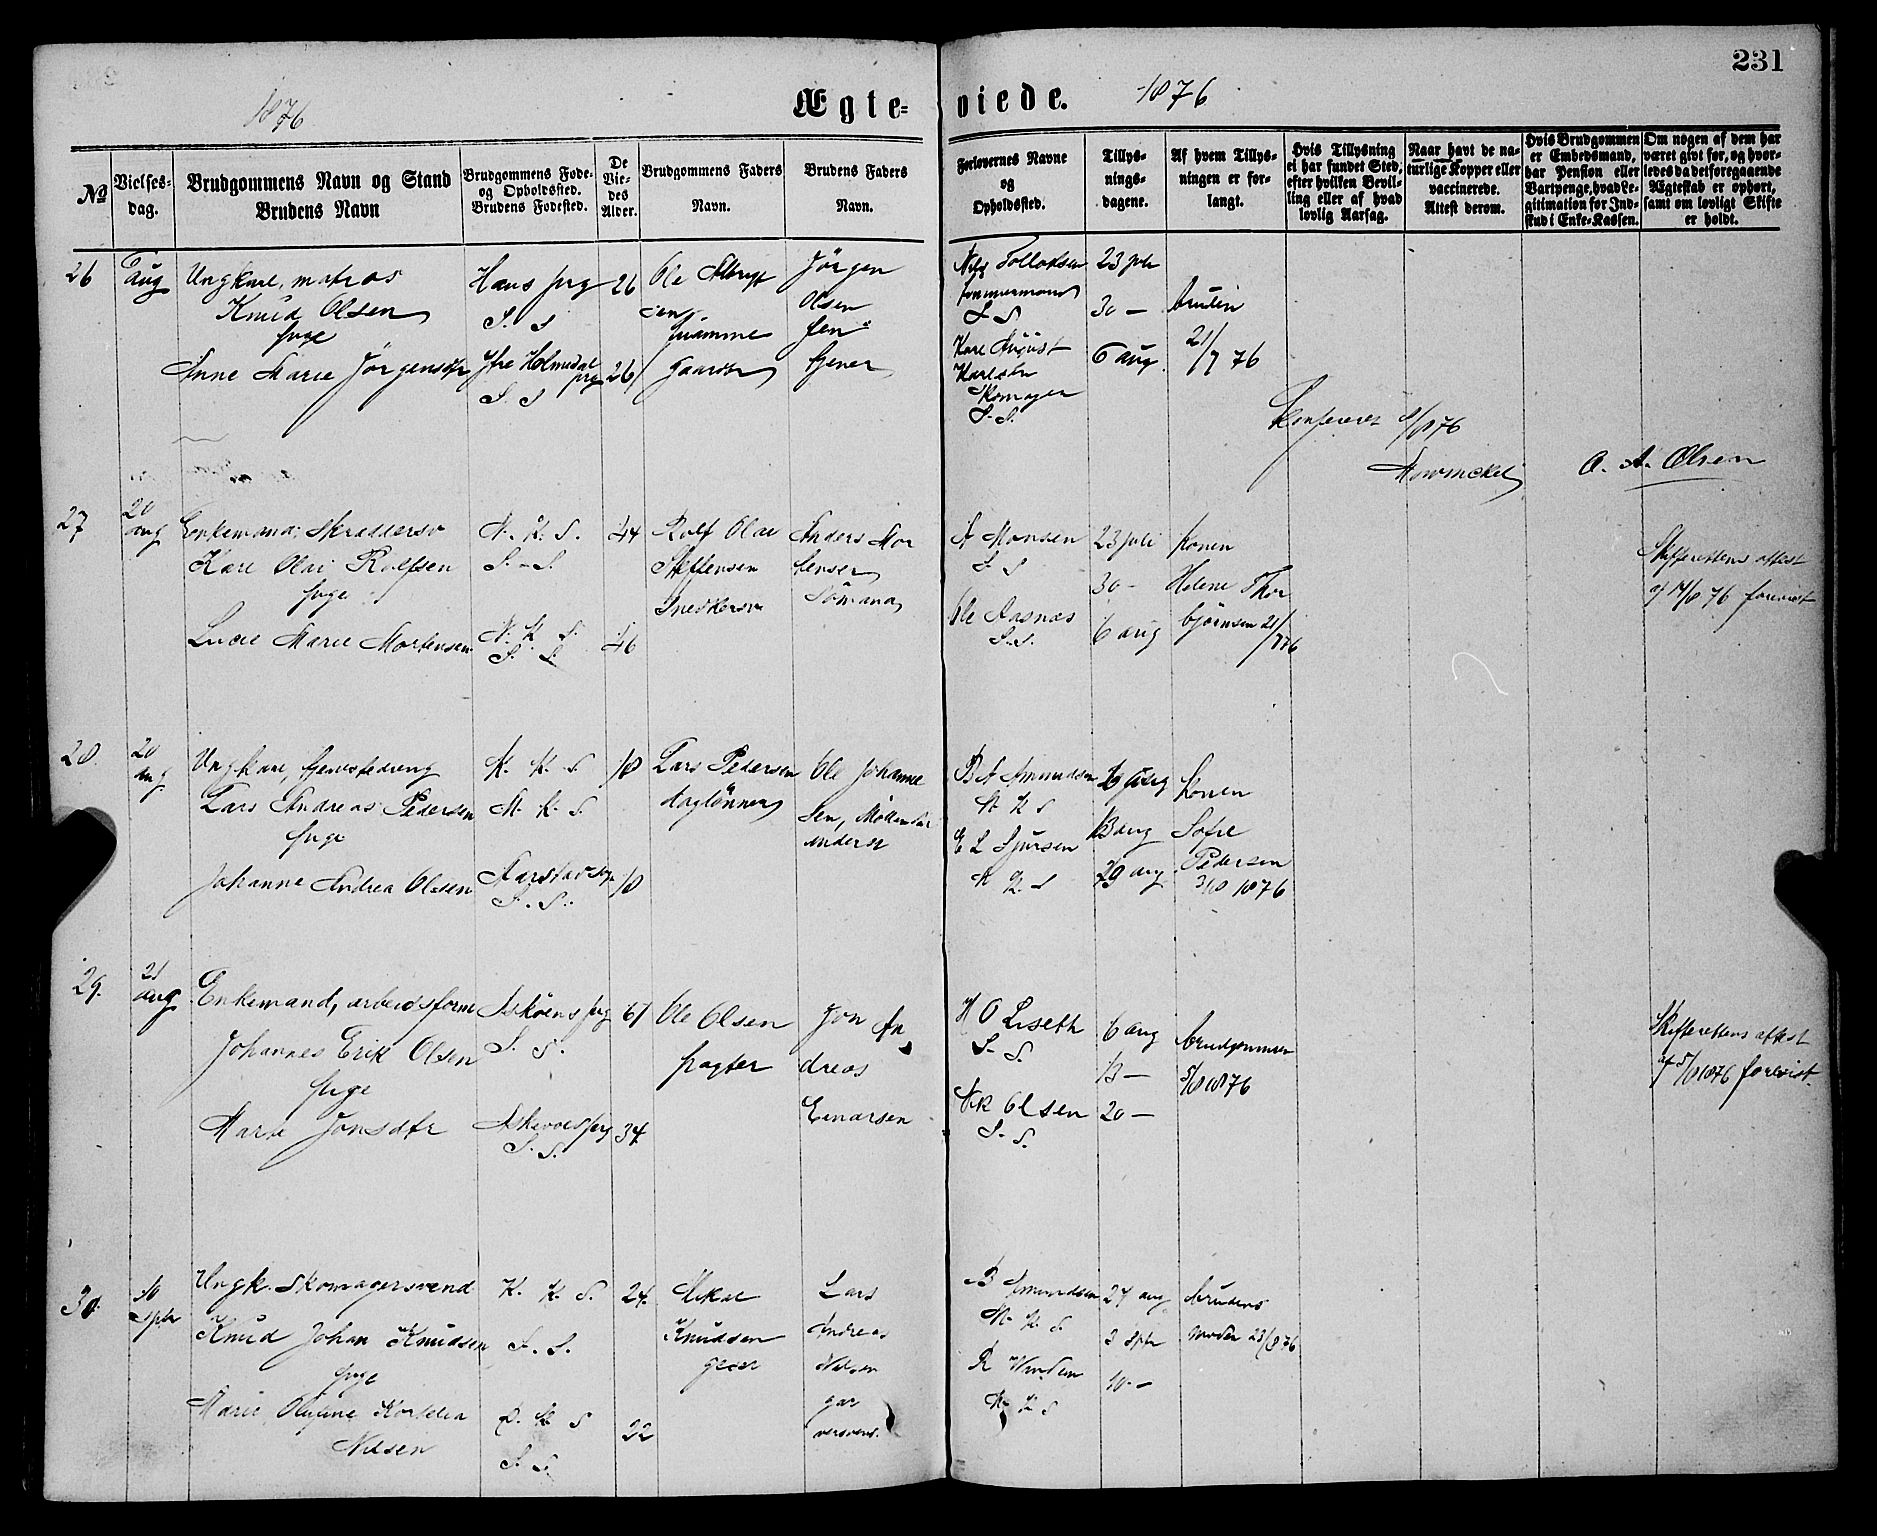 231
1876
Ægte-
viede.
1876
No
Vielses-
dag.
Brudgommens Navn og Stand
Brudens Navn
Brudgommens Føde-
og Opholdssted.
Brudens Fødested.
De
Vie-
des
Alder.
Brudgommens Faders
Navn.
Brudens Faders
Navn.
Forlovernes Navne
og
Opholdssted.
Tillys-
nings-
dagene.
Af hvem Tillys-
ningen er for-
langt.
Hvis Tillysning
ei har fundet Sted,
efter hvilken Bevil-
ling eller af hvad
lovlig Aarsag.
Naar havt de na-
turlige Kopper eller
vaccinerede.
Attest derom.
Hvis Brudgommen
er Embedsmand,
har Pension eller
Vartpenge, hvad Le-
gitimation for Ind-
skud i Enke-Kassen.
Om nogen af dem har
været givt før, og hvor-
ledes da det foregaaende
Ægteskab er ophørt,
samt om lovligt Skifte
er holdt.
26
6 Aug
Ungkarl, matros
Knud Olsen
Pige
Anne Marie Jörgensdtr
Haus prg
S. S
Ytre Holmedal
prg
S. S
26
26
Ole
Jörgen
Olsen
Nils
S S
Karl August
Karlsen
Skomager
S. S.
23 juli
30 —
6 aug
bruden
21/7 76
Konfereret 8/8 76
O. A. Olsen
27
20
aug
Enkemand, Skræddersv
Karl Olai Rolfsen
Pige
Lucie Marie Mortensen
N. K. S.
S. S.
N. K. S.
S. S.
44
46
Rolf Olai
Steffensen
Snedkersv
Anders Mor
tensen
Sömand
A Monsen
S. S
Ole Aasnæs
S. S.
23 juli
30 —
6 aug
Konen
Helene Thor
björnsen 21/
7 76
Skifterettens attest
af 14/8 76 forevist
28.
20
aug
Ungkarl, tjenestedreng
Lars Andreas Pedersen
Pige
Johanne Andrea Olsen
K. K. S
N. K. S.
Aarstad sogn
S. S.
18
18
Lars Pedersen
daglönner
Ole Johanne
sen,
B A Amundsen
N K S
E L Sjursen
N K S
6 aug
13 aug
20 aug
Konen
Sofie
Pedersen
3/8 1876
29.
21
aug
Enkemand, arbeidsform
Johannes Erik Olsen
Pige
Marte Jonsdtr
Asköens prg
S. S.
Askevold prg
S. S.
61
34
Ole Olsen
pagter
Jon An
dreas
Einarsen
H O Liseth
S. S.
Nik Olsen
S. S.
6 aug
13 —
20 —
brudgommen
5/8 1876
Skifterettens attest
af 5/8 1876 forevist.
30.
10
sptr
Ungk. Skomagersvend
Knud Johan Knudsen
Pige
Marie Olufine Kornelia
Nilsen
K. K. S.
S. S.
D. K. S
S. S.
24.
22
Mikal
Knudsen
Lars
Andreas
Nilsen
gar
versvend.
B Amundsen
N. K. S.
N. K. S
27 aug
3 sptr
10 —
brudens
moder 23/8 76